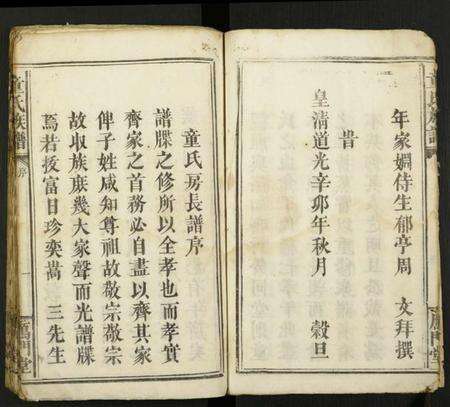 年家姻侍生郁亭周 文拜撰
旹
皇清道光辛卯年秋月 穀旦
雁門堂
童氏房長譜序
譜牒之修所以全孝也而孝實
齊家之首務必自盡以齊其家
俾子姓咸知尊祖故敬宗敬宗
故收族庶幾大家聲而光譜牒
焉若投富日珍奕嵩 三先生
童氏族譜
序
一
雁門堂